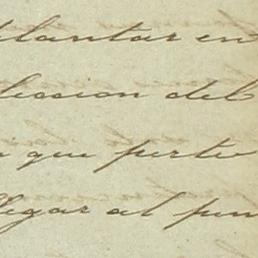 plantar en
leccion del
que perte
llegar al pun